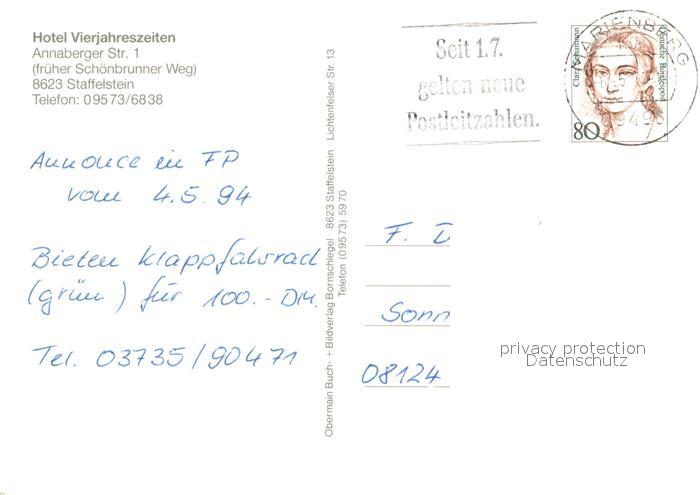 Hotel Vierjahreszeiten
Annaberger Str. 1
(früher Schönbrunner Weg)
8623 Staffelstein
Telefon: 09573/6838
Annonce in FP
vom 4.5.94
Bieten Klappfahrrad
(grün) für 100.- DM.
Tel. 03735/90471
Obermain Buch- + Bildverlag Bornschlegel 8623 Staffelstein Lichtenfelser Str. 13
Telefon (09573) 5970
Seit 1.7.
gelten neue
Postleitzahlen.
MARIENBERG
Clara Schumann
Deutsche Bundespost
80
F. D
Sonn
08124
privacy protection
Datenschutz